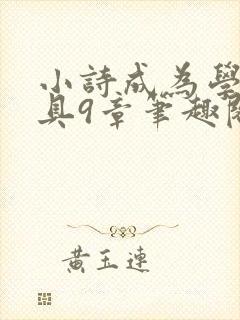 小詩成為學
具9章筆趣閱
黃玉連